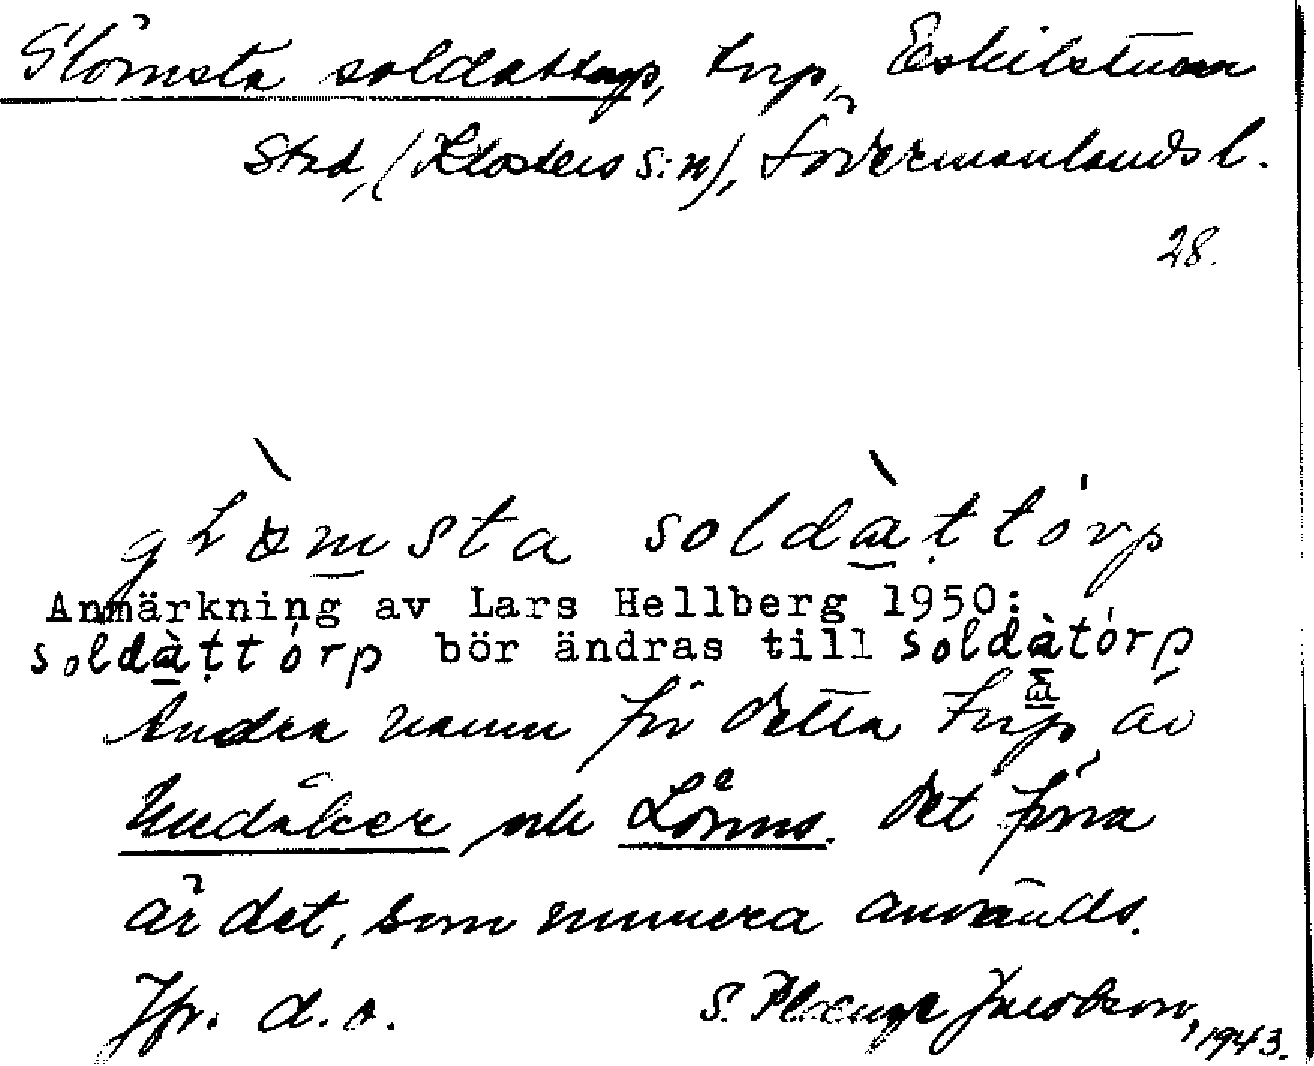 Glömsta soldattorp, torp, Eskilstuna
stad, (Klosters s:n), Södermanlands l.
28.
gLæ̀msta soldàttórp
Anmärkning av Lars Hellberg 1950:
soldàttórp bör ändras till soldàtórp
Andra namn för detta torp är
och Lönns. Det förra
är det, som numera används.
Jfr. d. o. S. Jacobson, 1943.